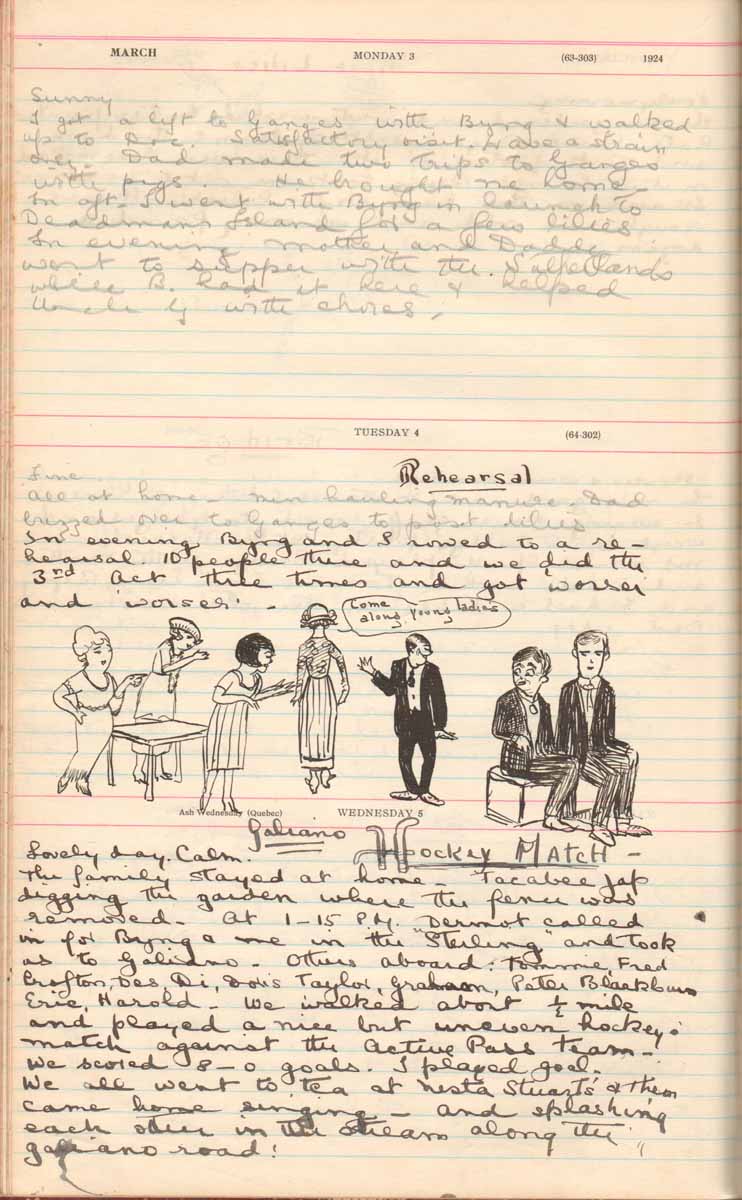 MARCH MONDAY 3 (63-303) 1924
Sunny
I got a lift to Ganges with Byng & walked
up to Doc. Satisfactory visit. Have a strain
only. Dad made two trips to Ganges
with pigs. He brought me home.
In aft. I went with Byng in launch to
Deadmans Island for a few lilies
In evening mother and Daddy
went to supper with the
while B. had it here & helped
Uncle G with chores.
TUESDAY 4 (64-302)
Fine Rehearsal
All at home – men hauling manure. Dad
buzzed over to Ganges to post lilies
In evening Byng and I rowed to a re-
hearsal. 10 people there and we did the
3rd Act three times and got 'worser
and 'worser' –
Come
along young ladies
Ash Wednesday (Quebec) WEDNESDAY 5
Galiano Hockey Match –
Lovely day. Calm.
The family stayed at home – Tacabee Jap
digging the garden where the fence was
removed – At 1-15 P.M. Dermot called
in for Byng & me in the "Sterling" and took
us to Galiano – Others aboard: Tommie, Fred
Crofton, Des, Di, Doris Taylor, Graham, Peter Blackburn
Eric, Harold – We walked about ½ mile
and played a nice but uneven hockey
match against the Active Pass team –
We scored 8-0 goals. I played goal.
We all went to tea at Nesta Stuarts' & then
came home singing – and splashing
each other in the stream along the
galiano road!